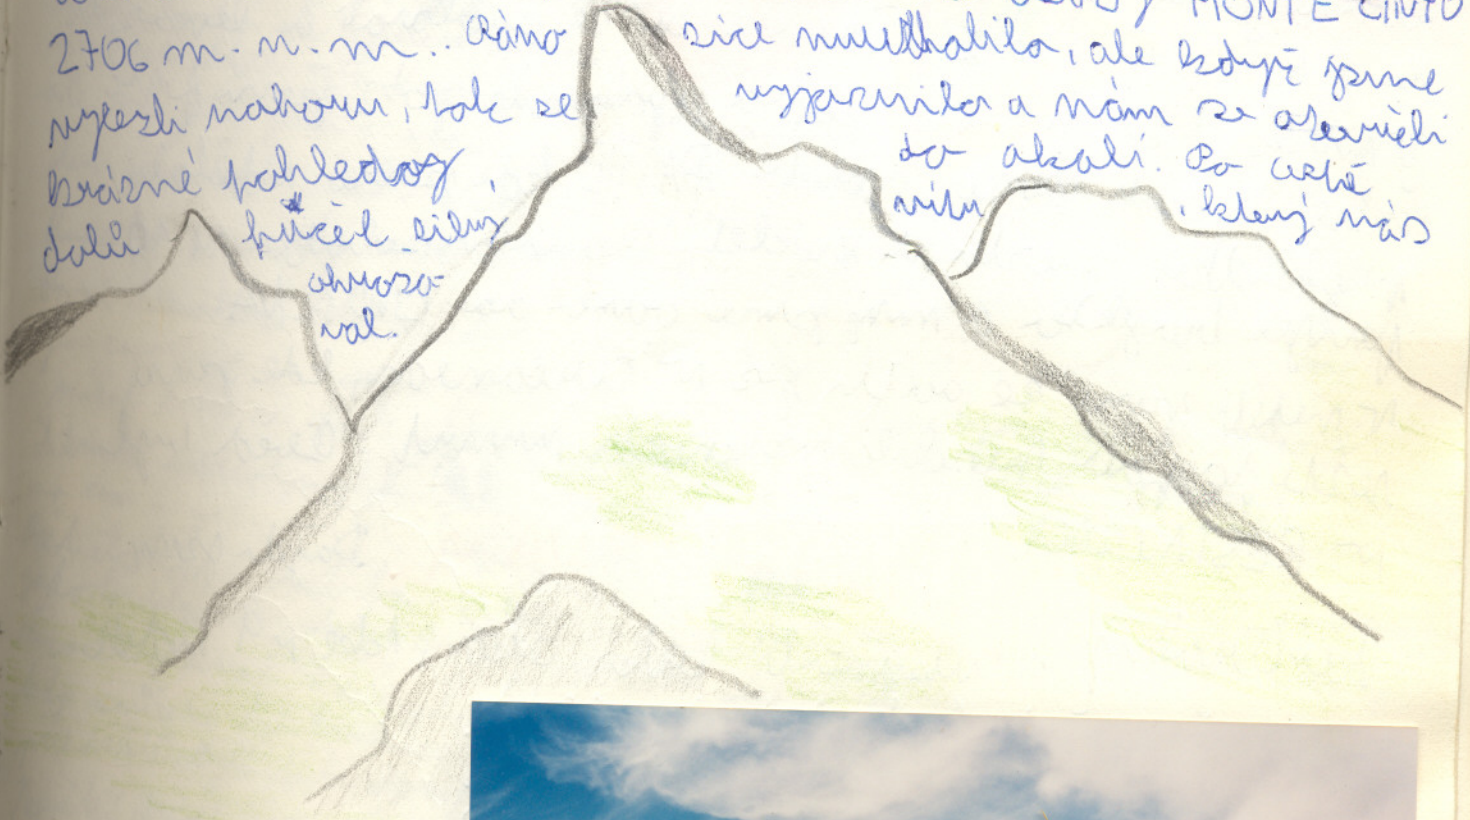 MONTE CINTO
2706 m.n.m.. Ráno sice, ale když jsme
vylezli nahoru, tak se vyjasnilo a nám se otevřeli
krásné pohledy do okolí. Po cestě
dolů fučel silný vítr, který nás
ohrožo-
val.